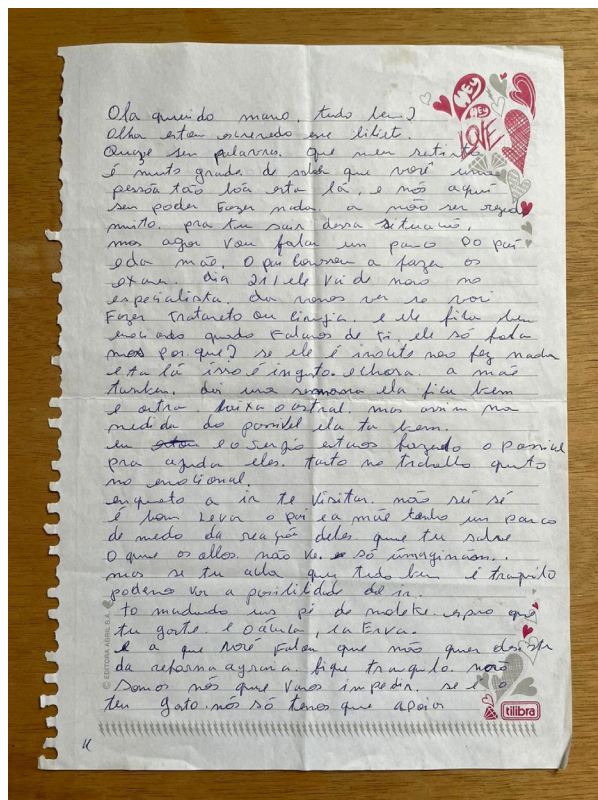 Ola querido mano. tudo bem?
Olha estou escrevedo ese bilist.
Quaze sen palavras. Que meu setinto
é muito grade. de saber que você uma
pessoa tão boa esta la, e nós aqui
sen poder Fazer nada. a não ser reza
muito. pra tu sair dessa situacão,
mas agor vou falar um poco Do pai
e da mãe, O pai comesou a fazer os
exame. dia 211 ele vai de novo no
especialista. da vamos ver se vai
Fazer Tratateto ou cirugia. e ele fica ben
emociado quado Falamos de ti ele só fala
mas por que? se ele é inocite nao fez nada
e ta lá isso é ingusto. e chora. a mãe
tanben. dai uma semana ela fica bem
e outra. baixa o astral. mas assim na
medida do possivel ela ta bem.
eu e o sergio estamos fazedo o possivel
pra ajuda eles. tarto no trabalho quato
no emocional.
enquato a ir te visitar. não sei sé
é bom Levar o pai e a mãe tenho um poco
de medo da reação deles. que tu sabe
O que os olhos não ve. so imaginam..
mas se tu acha que tudo ben é traquilo
podemo ver a posibilidade de ir.
to madando uns pé de moleke. espro que
tu goste. e O , ea Erva.
e a que você Falou que não quer desistir
da reforma agraria. fique traquilo. não
Somos nós que Vamos impedir. se é o
teu gosto. nós só temos que apoiar
HEY
HEY
LOVE
© EDITORA ABRIL S.A.
tilibra